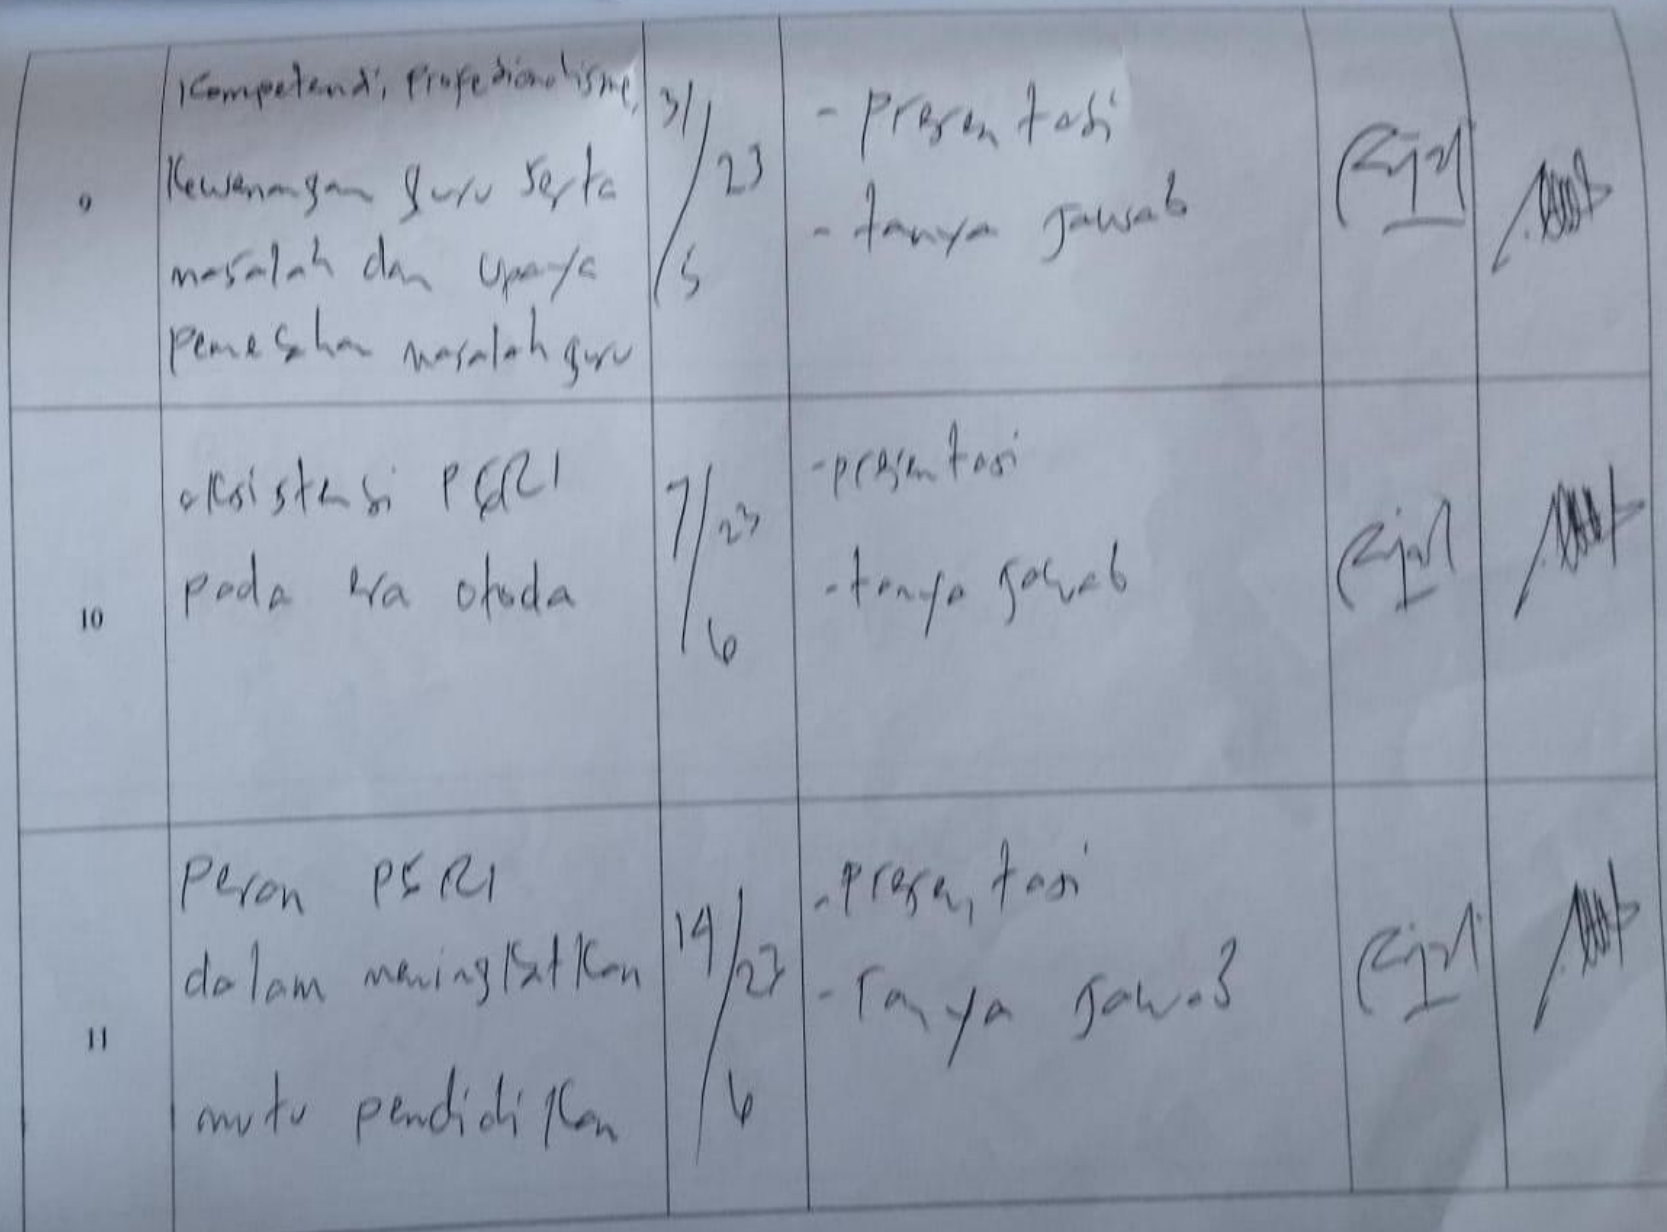 9
Kompetensi, Profesionalisme,
Kewenangan guru serta
masalah dan upaya
pemecahan masalah guru
31/5 23
- presentasi
- tanya jawab
10
eksistensi PGRI
pada era otoda
7/6 23
- presentasi
- tanya jawab
11
Peran PGRI
dalam meningkatkan
mutu pendidikan
14/6 23
- presentasi
- Tanya jawab